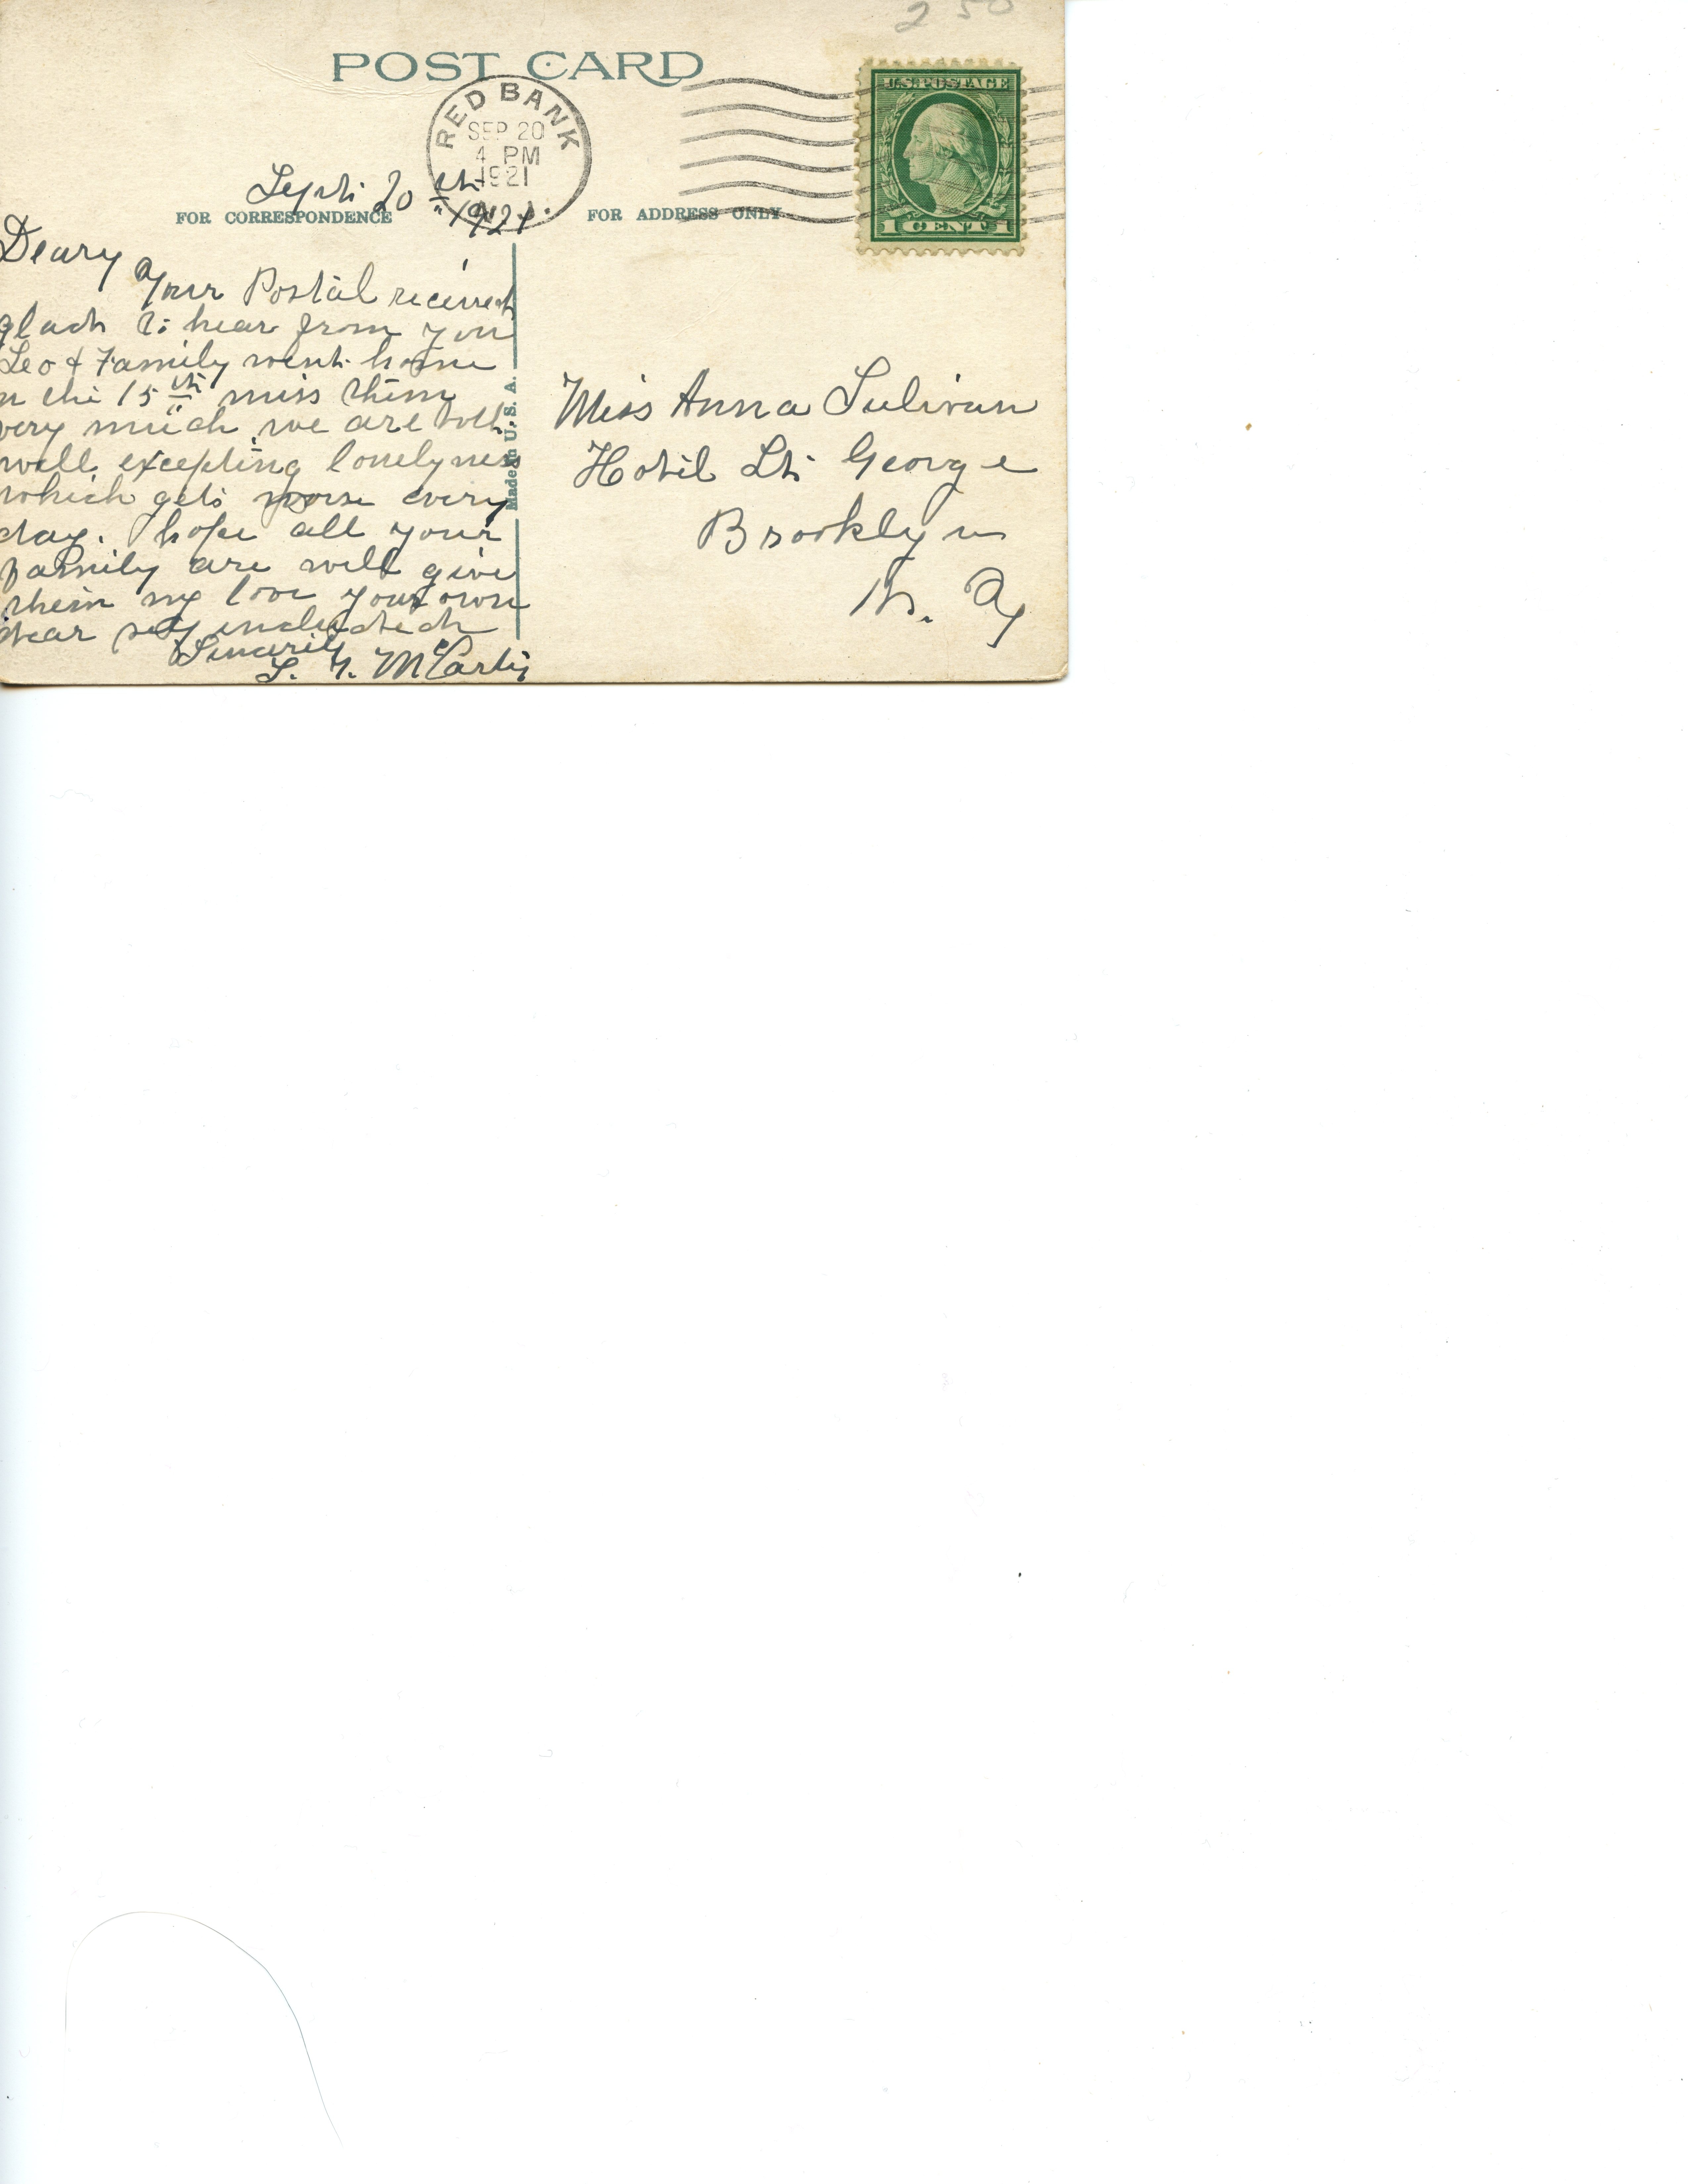 2 50
POST CARD
U.S. POSTAGE
1 CENT 1
RED BANK
SEP 20
4 PM
1921
N.J.
Sept. 20th 1921
FOR CORRESPONDENCE
FOR ADDRESS ONLY
Deary
Your Postal received
glad to hear from you
Leo & Family went home
n the 15th miss them
very much, we are both
well excepting lonelyness
which gets worse every
day. hope all your
family are well give
them my love your own
dear self included
Sincerely
McCarty
Made in U.S.A.
Miss Anna Sulivan
Hotel St. George
Brooklyn
N. Y